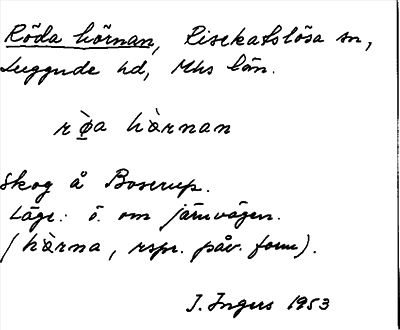 Röda hörnan, Risekatslösa sn,
Luggude hd, Mhs län.
rø̀a hàrnan
Skog å Boserup.
Läge: ö. om järnvägen.
(hàrna, rspr. påv. form).
J. Ingers 1953